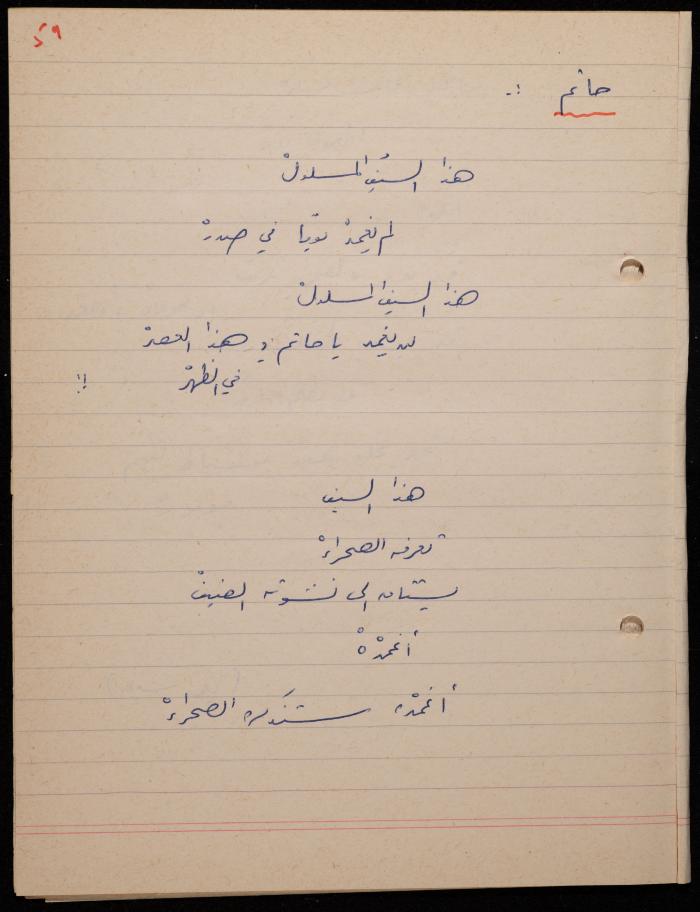 ٥٩
حاتم :-
هذا السيف المسلولْ
لم يغمدْ يوماً في صدرْ
هذا السيف المسلولْ
لن يغمد يا حاتم في هذا العصرْ
في الظهرْ !!
هذا السيف
تعرفه الصحراءْ
يشتاق الى نشوته الضيفْ
أغمدْهْ
أغمدْه ستذكره الصحراءْ